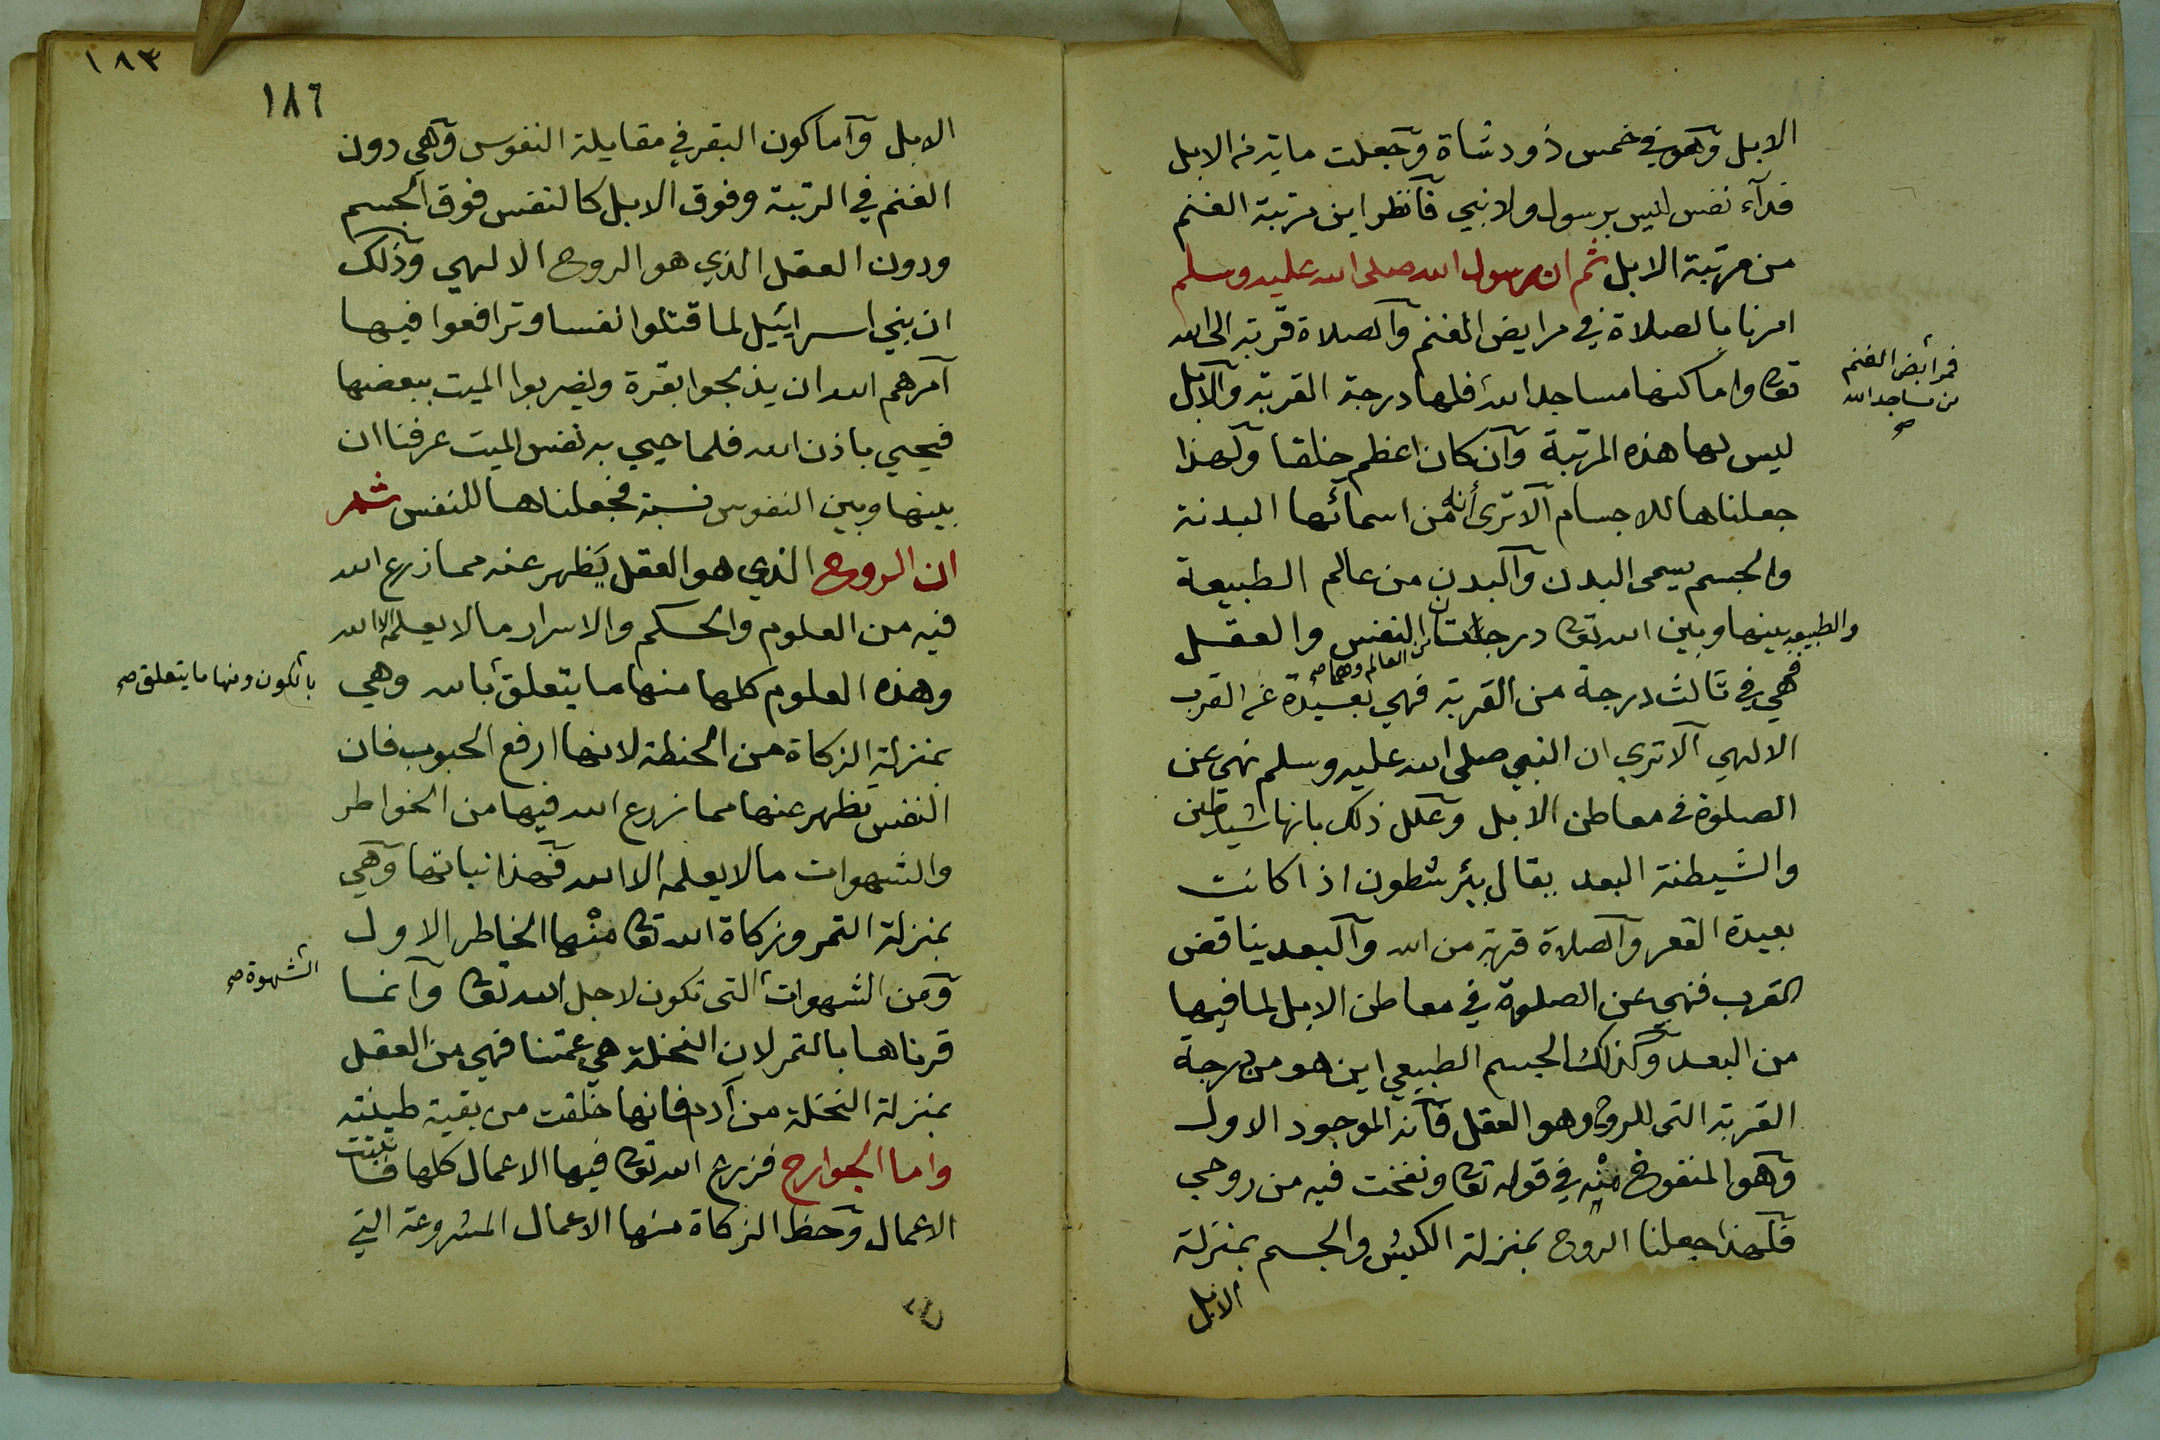 الابل وهو في خمس ذود شاة وجعلت ماية من الابل
فدآء نفس ليس برسول ولا نبي فانظر اين مرتبة الغنم
من مرتبة الابل ثم ان رسول الله صلى الله عليه وسلم
امرنا بالصلاة في مرابض الغنم والصلاة قربة الى الله
تعا واماكنها مساجد الله فلها درجة القربة والابل
فمرابض الغنم
من مساجد الله
صح
ليس لها هذه المرتبة وان كان اعظم خلقا ولهذا
جعلناها للاجسام الا ترى أنه من اسمائها البدنة
والجسم يسمى البدن والبدن من عالم الطبيعة
والطبيعة بينها وبين الله تعا درجتان النفس والعقل
من العالم وهما صح
فهي في ثالث درجة من القربة فهي بعيدة عن القرب
الالهي الا ترى ان النبي صلى الله عليه وسلم نهى عن
الصلوة في معاطن الابل وعلل ذلك بانها شياطين
والشيطنة البعد يقال بئر شطون اذا كانت
بعيدة القعر والصلاة قربة من الله والبعد يناقض
القرب فنهى عن الصلوة في معاطن الابل لما فيها
من البعد وكذلك الجسم الطبيعي اين هو من درجة
القربة التى للروح وهو العقل فانه الموجود الاول
وهو المنفوخ منه في قوله تعا ونفخت فيه من روحي
فلهذا جعلنا الروح بمنزلة الكبش والجسم بمنزلة
الابل
١٨٣
١٨٦
الابل واما كون البقر في مقابلة النفوس وهي دون
الغنم في الرتبة وفوق الابل كالنفس فوق الجسم
ودون العقل الذي هو الروح الالهي وذلك
ان بني اسرائيل لما قتلوا نفسا وترافعوا فيها
آمرهم الله ان يذبحوا بقرة ويضربوا الميت ببعضها
فيحيي باذن الله فلما حيي به نفس الميت عرفنا ان
بينها وبين النفوس نسبة فجعلناها للنفس ثم
ان الروح الذي هو العقل يظهر عنه مما زرع الله
فيه من العلوم والحكم والاسرار ما لا يعلمه الا الله
وهذه العلوم كلها منها ما يتعلق بالله وهي
بالكون ومنها ما يتعلق صح
بمنزلة الزكاة من الحنطة لانها ارفع الحبوب فان
النفس يظهر عنها مما زرع الله فيها من الخواطر
والشهوات ما لا يعلمه الا الله فهذا نباتها وهي
بمنزلة التمر وزكاة الله تعا منها الخاطر الاول
ومن الشهوات التى تكون لاجل الله تعا وانما
الشهوة صح
قرناها بالتمر لان النخلة هي عمتنا فهي من العقل
بمنزلة النخلة من آدم فانها خلقت من بقية طينته
واما الجوارح فزرع الله تعا فيها الاعمال كلها فانبتت
الاعمال وحظ الزكاة منها الاعمال المشروعة التي